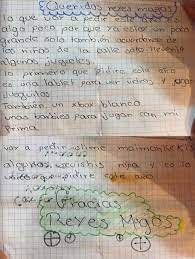 ¡Queridos reyes magos!
lo que voy a pedir este año es
algo para por que ya estoy un poco
grande solo también acuerdanse de
los niños de la calle solo llevenle
algunos juguetes.
lo primero que pidire este año
es una tablet para ver videos y
juguitos
También un xbox blanco
unas barbies para jugar con mi
prima
voy a pedir slime
algunos squishis y es lo
que pidire este año
Gracias
Reyes Magos